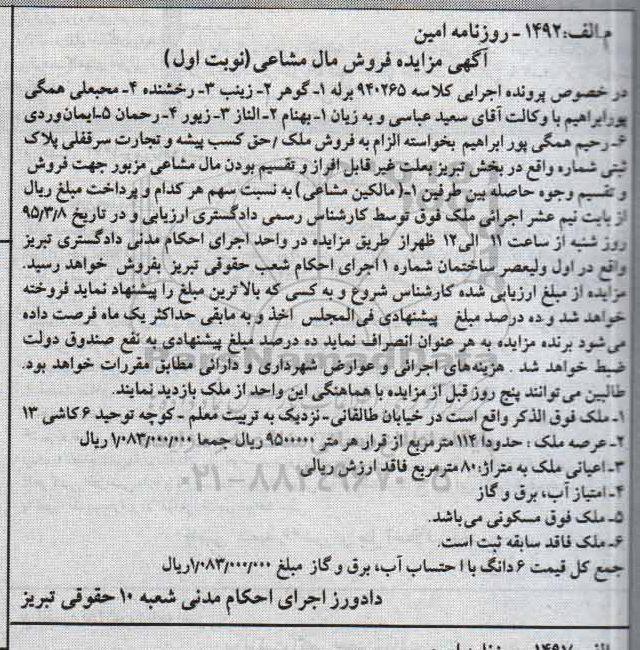 م الف:۱۴۹۲ - روزنامه امین
آگهی مزایده فروش مال مشاعی(نوبت اول)
در خصوص پرونده اجرایی کلاسه ۹۴۰۲۶۵ برله ۱- گوهر ۲- زینب ۳- رخشنده ۴- محبعلی همگی
پورابراهیم با وکالت آقای سعید عباسی و به زیان ۱- بهنام ۲- الناز ۳- زیور ۴- رحمان ۵- ایمان‌وردی
۶- رحیم همگی پور ابراهیم بخواسته الزام به فروش ملک /حق کسب پیشه و تجارت سرقفلی پلاک
ثبتی شماره واقع در بخش تبریز بعلت غیر قابل افراز و تقسیم بودن مال مشاعی مزبور جهت فروش
و تقسیم وجوه حاصله بین طرفین ۱-( مالکین مشاعی) به نسبت سهم هر کدام و پرداخت مبلغ ریال
از بابت نیم عشر اجرائی ملک فوق توسط کارشناس رسمی دادگستری ارزیابی و در تاریخ ۹۵/۳/۸
روز شنبه از ساعت ۱۱ الی ۱۲ ظهر از طریق مزایده در واحد اجرای احکام مدنی دادگستری تبریز
واقع در اول ولیعصر ساختمان شماره ۱ اجرای احکام شعب حقوقی تبریز بفروش خواهد رسید.
مزایده از مبلغ ارزیابی شده کارشناس شروع و به کسی که بالا ترین مبلغ را پیشنهاد نماید فروخته
خواهد شد و ده درصد مبلغ پیشنهادی فی‌المجلس اخذ و به مابقی حداکثر یک ماه فرصت داده
می‌شود برنده مزایده به هر عنوان انصراف نماید ده درصد مبلغ پیشنهادی به نفع صندوق دولت
ضبط خواهد شد . هزینه‌های اجرائی و عوارض شهرداری و دارائی مطابق مقررات خواهد بود.
طالبین می‌توانند پنج روز قبل از مزایده با هماهنگی این واحد از ملک بازدید نمایند.
۱- ملک فوق الذکر واقع است در خیابان طالقانی- نزدیک به تربیت معلم - کوچه توحید ۶ کاشی ۱۳
۲- عرصه ملک : حدودا ۱۱۴ مترمربع از قرار هر متر ۹۵۰۰۰۰۰ ریال جمعا ۱/۰۸۳/۰۰۰/۰۰۰ ریال
۳- اعیانی ملک به متراژ: ۸۰ مترمربع فاقد ارزش ریالی
۴- امتیاز آب، برق و گاز
۵- ملک فوق مسکونی می‌باشد.
۶- ملک فاقد سابقه ثبت است.
جمع کل قیمت ۶ دانگ با ا حتساب آب، برق و گاز مبلغ ۱/۰۸۳/۰۰۰/۰۰۰ریال
دادورز اجرای احکام مدنی شعبه ۱۰ حقوقی تبریز